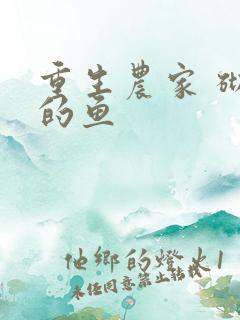 重生農家
的魚
他鄉的燈火1
未經同意禁止轉載